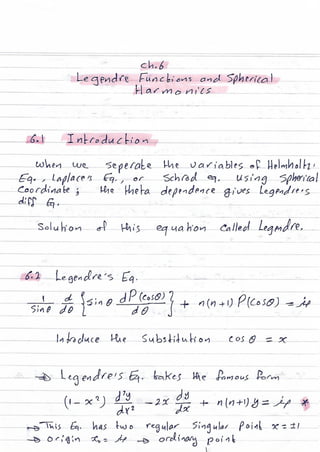 ch.6
Legendre Functions and Spherical
Harmonics
6.1 Introduction
when we seperate the variables of Helmholtz
Eq., Laplaces Eq., or Schrod eq. using Spherical
Coordinate ; the theta dependence gives Legendre's
diff Eq.
Solution of this equation called Legendre.
6.2 Legendre's Eq.
1/sinθ d/dθ {sinθ dP(cosθ)/dθ} + n(n+1) P(cosθ) =
Intoduce the Substitution cosθ = x
→ Legendre's Eq. takes the famous form
(1-x²) d²y/dx² - 2x dy/dx + n(n+1)y = *
→ This Eq. has two regular Singular Point x=±1
→ origin x₀ = → ordinary point